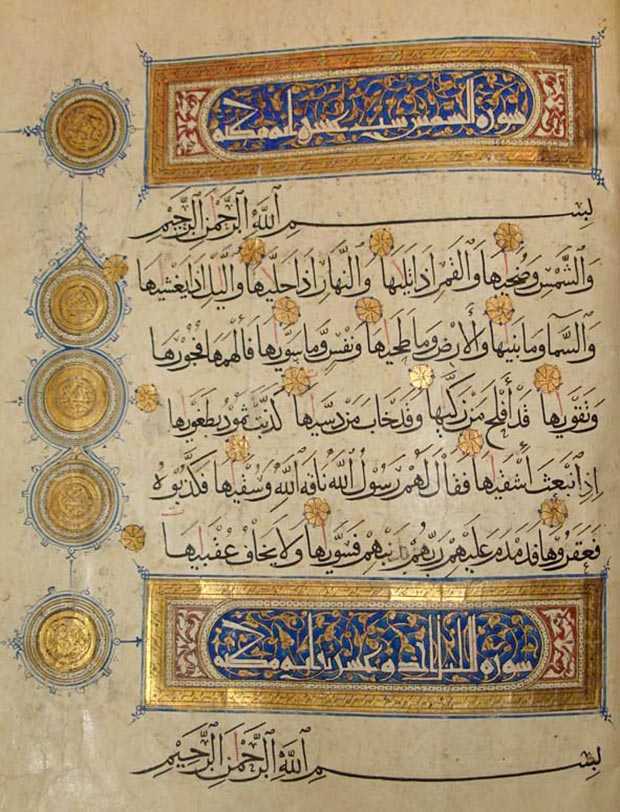 سورة الشمس ست عشر آية مكية
بسم الله الرحمن الرحيم
والشمس وضحيها والقمر اذا تليها والنهار اذا جليها واليل اذا يغشيها
والسما وما بنيها والأرض وما طحيها ونفس وما سويها فألهمها فجورها
وتقويها قد أفلح من زكيها وقد خاب من دسيها كذبت ثمود بطغويها
إذ انبعث أشقيها فقال لهم رسول الله ناقة الله وسقيها فكذبوه
فعقروها فدمدم عليهم ربهم بذنبهم فسويها ولا يخاف عقبيها
سورة الليل احدى وعشرين آية مكية
بسم الله الرحمن الرحيم